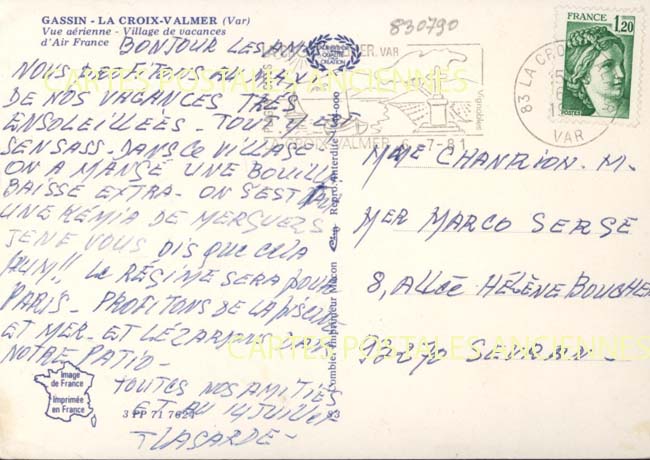 GASSIN - LA CROIX-VALMER (Var)
Vue aérienne - Village de vacances
d'Air France
830790
FRANCE
1,20
POSTES
83 LA CROIX
VAR
VAR
Vignobles
CROIX-VALMER 6-7-81
BONJOUR LES AMIS
NOUS PROFITONS AU MAXI
DE NOS VACANCES TRÈS
ENSOLEILLÉES - TOUT Y EST
SENSASS - DANS CE VILLAGE
ON A MANGÉ UNE BOUILLA
BAISSE EXTRA - ON S'EST
UNE KÉMIA DE MERGUEZS
JE NE VOUS DIS QUE CELA
MIUM!! LE RÉGIME SERA POUR
PARIS - PROFITONS DE LA PISCINE
ET MER - ET LÉZARDONS DANS
NOTRE PATIO -
TOUTES NOS AMITIÉS
ET AU 14 JUILLET
T LAGARDE -
Combier Imprimeur Macon Repro. Interdite
Image
de France
Imprimée
en France
3 PP 71 7621
83
MME CHANRION. M.
MER MARCO SERGE
8, Allée HÉLÈNE BOUCHER
93270 SEVRAN
CARTES POSTALES ANCIENNES
CARTES POSTALES ANCIENNES